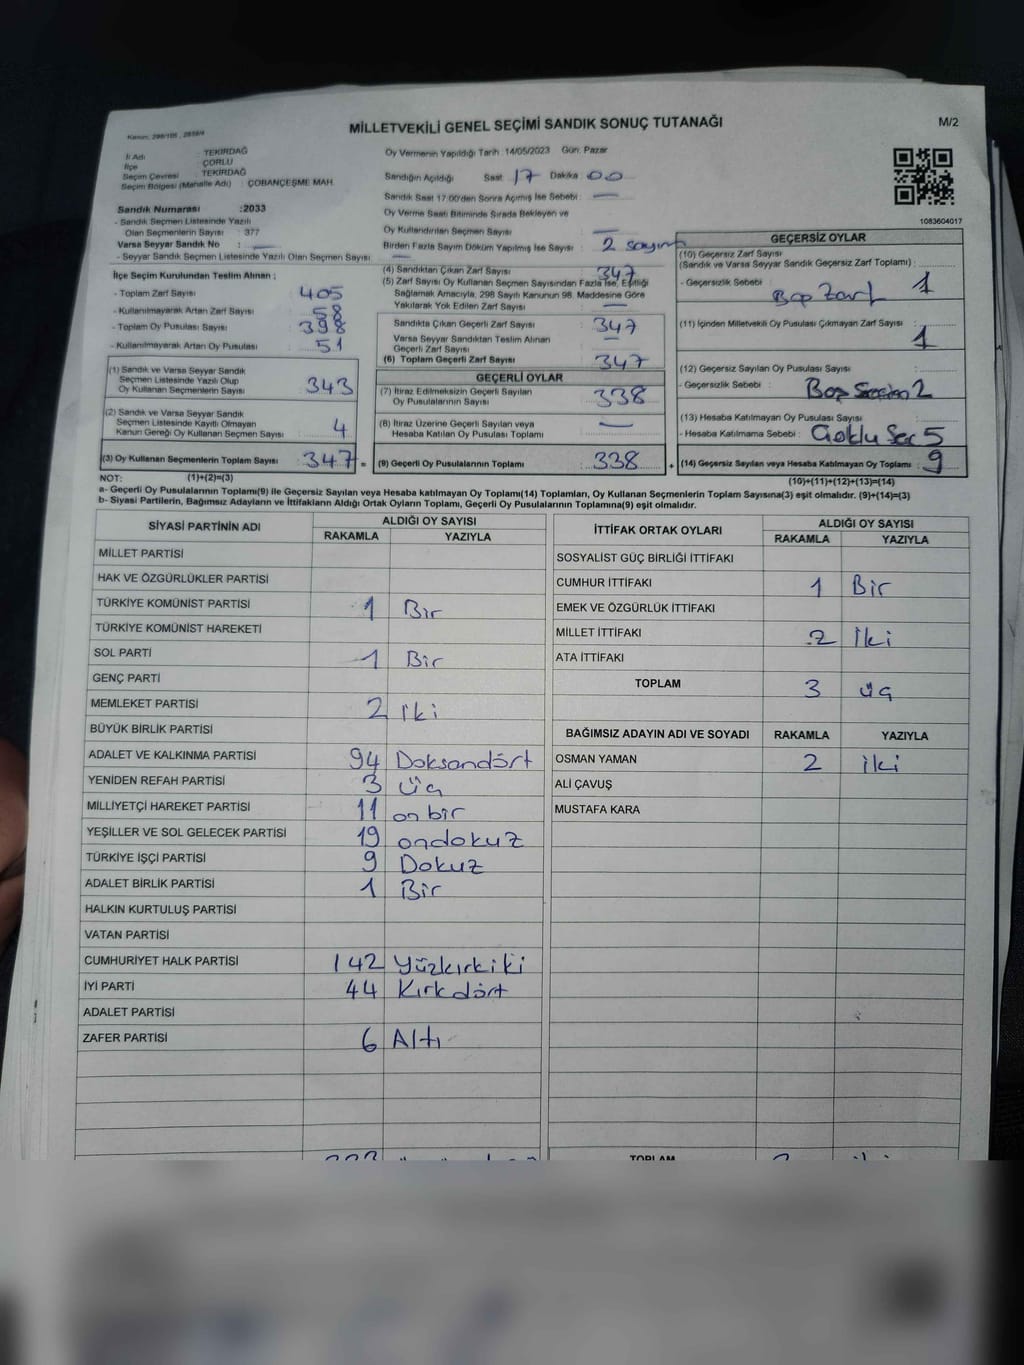 Kanun: 298/105 , 2839/4
MİLLETVEKİLİ GENEL SEÇİMİ SANDIK SONUÇ TUTANAĞI
M/2
İl Adı : TEKİRDAĞ
İlçe : ÇORLU
Seçim Çevresi : TEKİRDAĞ
Seçim Bölgesi (Mahalle Adı) : ÇOBANÇEŞME MAH.
Oy Vermenin Yapıldığı Tarih :14/05/2023 Gün: Pazar
Sandığın Açıldığı Saat 17 Dakika 00
Sandık Saat 17.00'den Sonra Açılmış İse Sebebi : —
Oy Verme Saati Bitiminde Sırada Bekleyen ve
Oy Kullandırılan Seçmen Sayısı : —
Birden Fazla Sayım Döküm Yapılmış İse Sayısı : 2 sayım
1083604017
Sandık Numarası :2033
- Sandık Seçmen Listesinde Yazılı
Olan Seçmenlerin Sayısı : 377
Varsa Seyyar Sandık No : —
- Seyyar Sandık Seçmen Listesinde Yazılı Olan Seçmen Sayısı : —
İlçe Seçim Kurulundan Teslim Alınan ;
- Toplam Zarf Sayısı : 405
- Kullanılmayarak Artan Zarf Sayısı : 58
- Toplam Oy Pusulası Sayısı : 398
- Kullanılmayarak Artan Oy Pusulası : 51
(1) Sandık ve Varsa Seyyar Sandık
Seçmen Listesinde Yazılı Olup
Oy Kullanan Seçmenlerin Sayısı : 343
(2) Sandık ve Varsa Seyyar Sandık
Seçmen Listesinde Kayıtlı Olmayan
Kanun Gereği Oy Kullanan Seçmen Sayısı : 4
(3) Oy Kullanan Seçmenlerin Toplam Sayısı : 347 =
(4) Sandıktan Çıkan Zarf Sayısı : 347
(5) Zarf Sayısı Oy Kullanan Seçmen Sayısından Fazla İse, Eşitliği
Sağlamak Amacıyla, 298 Sayılı Kanunun 98. Maddesine Göre
Yakılarak Yok Edilen Zarf Sayısı : —
Sandıkta Çıkan Geçerli Zarf Sayısı : 347
Varsa Seyyar Sandıktan Teslim Alınan
Geçerli Zarf Sayısı : —
(6) Toplam Geçerli Zarf Sayısı : 347
GEÇERLİ OYLAR
(7) İtiraz Edilmeksizin Geçerli Sayılan
Oy Pusulalarının Sayısı : 338
(8) İtiraz Üzerine Geçerli Sayılan veya
Hesaba Katılan Oy Pusulası Toplamı : —
(9) Geçerli Oy Pusulalarının Toplamı : 338 +
GEÇERSİZ OYLAR
(10) Geçersiz Zarf Sayısı
(Sandık ve Varsa Seyyar Sandık Geçersiz Zarf Toplamı) :
- Geçersizlik Sebebi : Boş Zarf 1
(11) İçinden Milletvekili Oy Pusulası Çıkmayan Zarf Sayısı : 1
(12) Geçersiz Sayılan Oy Pusulası Sayısı :
- Geçersizlik Sebebi : Boş Seçim 2
(13) Hesaba Katılmayan Oy Pusulası Sayısı :
- Hesaba Katılmama Sebebi : Çoklu Seç 5
(14) Geçersiz Sayılan veya Hesaba Katılmayan Oy Toplamı : 9
NOT: (1)+(2)=(3)
(10)+(11)+(12)+(13)=(14)
a- Geçerli Oy Pusulalarının Toplamı(9) ile Geçersiz Sayılan veya Hesaba katılmayan Oy Toplamı(14) Toplamları, Oy Kullanan Seçmenlerin Toplam Sayısına(3) eşit olmalıdır. (9)+(14)=(3)
b- Siyasi Partilerin, Bağımsız Adayların ve İttifakların Aldığı Ortak Oyların Toplamı, Geçerli Oy Pusulalarının Toplamına(9) eşit olmalıdır.
SİYASİ PARTİNİN ADI ALDIĞI OY SAYISI
RAKAMLA YAZIYLA
MİLLET PARTİSİ
HAK VE ÖZGÜRLÜKLER PARTİSİ
TÜRKİYE KOMÜNİST PARTİSİ 1 Bir
TÜRKİYE KOMÜNİST HAREKETİ
SOL PARTİ 1 Bir
GENÇ PARTİ
MEMLEKET PARTİSİ 2 iki
BÜYÜK BİRLİK PARTİSİ
ADALET VE KALKINMA PARTİSİ 94 Doksandört
YENİDEN REFAH PARTİSİ 3 üç
MİLLİYETÇİ HAREKET PARTİSİ 11 on bir
YEŞİLLER VE SOL GELECEK PARTİSİ 19 ondokuz
TÜRKİYE İŞÇİ PARTİSİ 9 Dokuz
ADALET BİRLİK PARTİSİ 1 Bir
HALKIN KURTULUŞ PARTİSİ
VATAN PARTİSİ
CUMHURİYET HALK PARTİSİ 142 Yüzkırkiki
İYİ PARTİ 44 Kırkdört
ADALET PARTİSİ
ZAFER PARTİSİ 6 Altı
İTTİFAK ORTAK OYLARI ALDIĞI OY SAYISI
RAKAMLA YAZIYLA
SOSYALİST GÜÇ BİRLİĞİ İTTİFAKI
CUMHUR İTTİFAKI 1 Bir
EMEK VE ÖZGÜRLÜK İTTİFAKI
MİLLET İTTİFAKI 2 İki
ATA İTTİFAKI
TOPLAM 3 üç
BAĞIMSIZ ADAYIN ADI VE SOYADI RAKAMLA YAZIYLA
OSMAN YAMAN 2 iki
ALİ ÇAVUŞ
MUSTAFA KARA
TOPLAM